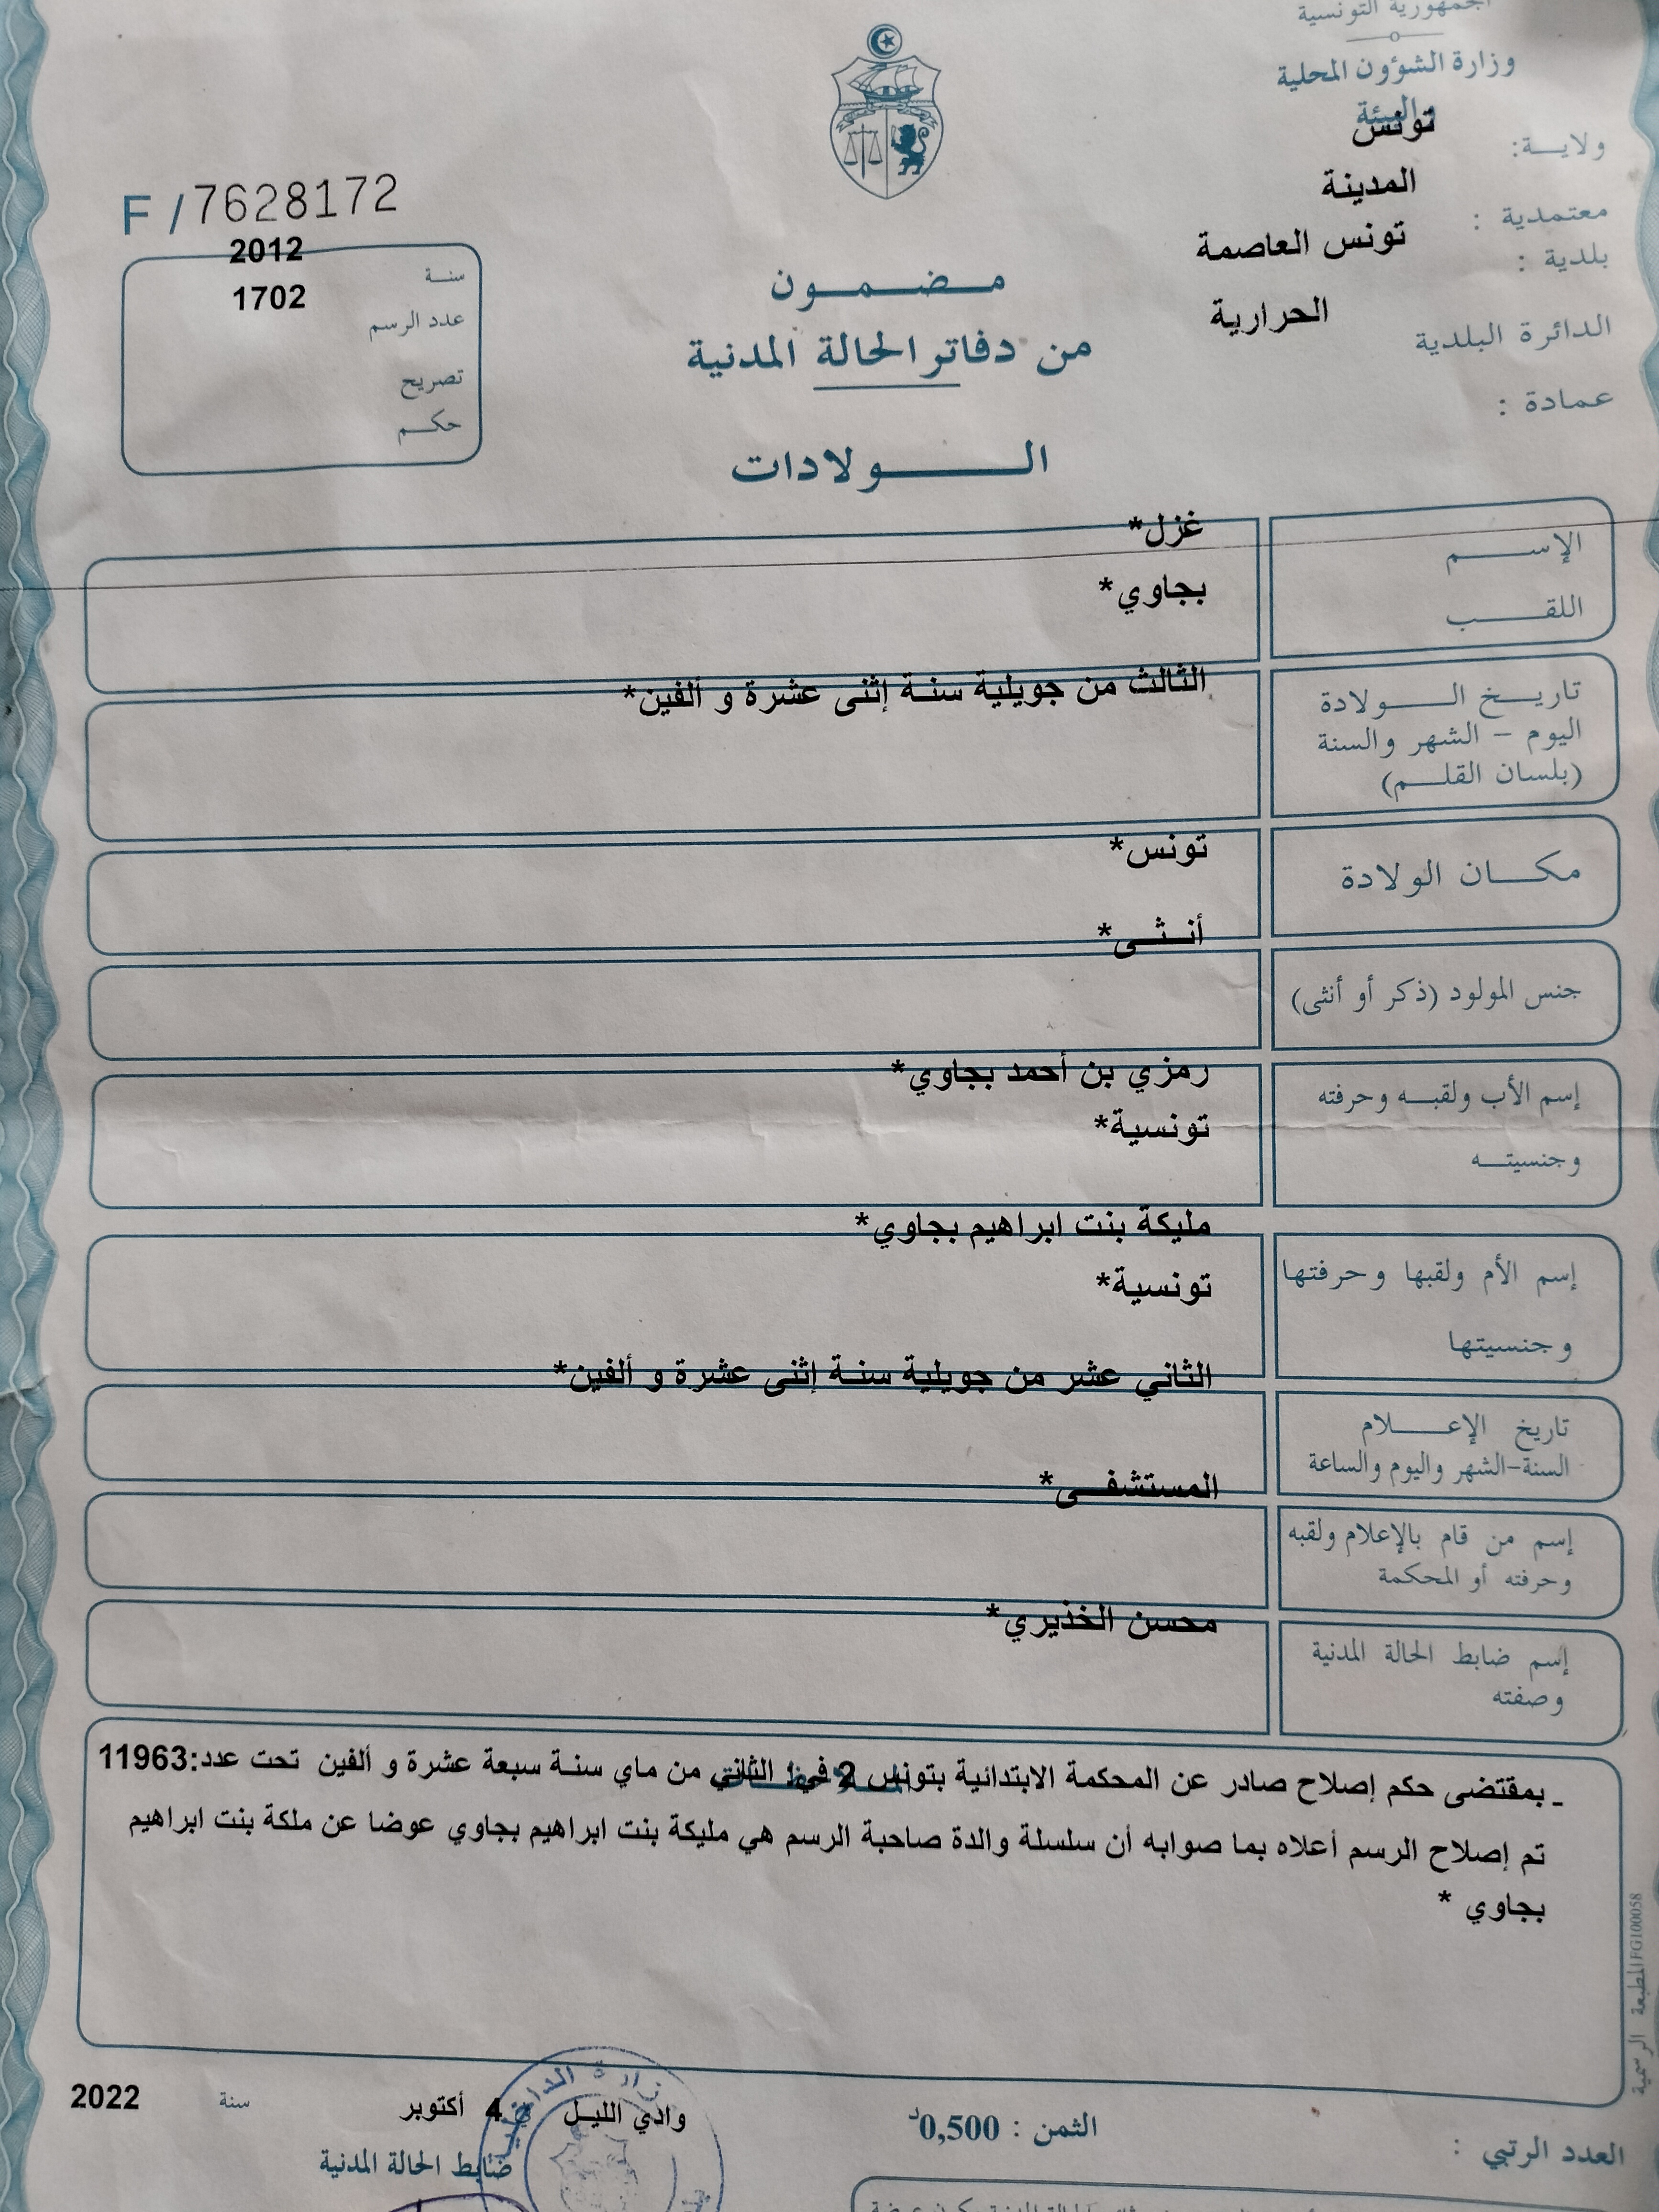 الجمهورية التونسية
وزارة الشؤون المحلية
والبيئة
ولاية: تونس
معتمدية : المدينة
بلدية : تونس العاصمة
الدائرة البلدية الحرارية
عمادة :
F / 7628172
سنة 2012
عدد الرسم 1702
تصريح
حكم
مضمون
من دفاتر الحالة المدنية
الولادات
الإسم غزل*
اللقب بجاوي*
تاريخ الولادة الثالث من جويلية سنة إثنى عشرة و ألفين*
اليوم - الشهر والسنة
(بلسان القلم)
مكان الولادة تونس*
جنس المولود (ذكر أو أنثى) أنثى*
إسم الأب ولقبه وحرفته رمزي بن أحمد بجاوي*
وجنسيته تونسية*
إسم الأم ولقبها وحرفتها مليكة بنت ابراهيم بجاوي*
وجنسيتها تونسية*
تاريخ الإعلام الثاني عشر من جويلية سنة إثنى عشرة و ألفين*
السنة-الشهر واليوم والساعة
إسم من قام بالإعلام ولقبه المستشفى*
وحرفته أو المحكمة
إسم ضابط الحالة المدنية محسن الخذيري*
وصفته
ـ بمقتضى حكم إصلاح صادر عن المحكمة الابتدائية بتونس 2 في الثاني من ماي سنة سبعة عشرة و ألفين تحت عدد:11963
تم إصلاح الرسم أعلاه بما صوابه أن سلسلة والدة صاحبة الرسم هي مليكة بنت ابراهيم بجاوي عوضا عن ملكة بنت ابراهيم
بجاوي *
المطبعة الرسمية FG100058
وادي الليل 4 أكتوبر سنة 2022
ضابط الحالة المدنية
الثمن : 0,500د
العدد الرتبي :
وزارة الداخلية